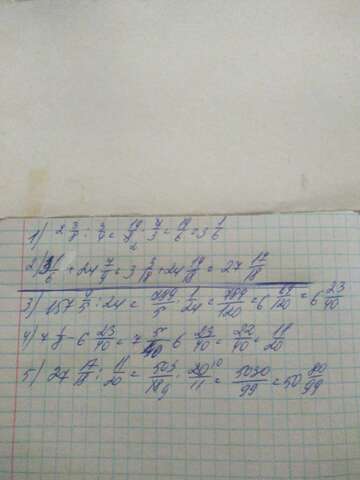 1) 2 3/8 : 3/4 = 19/8 · 4/3 = 19/6 = 3 1/6
2) 3 1/6 + 24 7/9 = 3 3/18 + 24 14/18 = 27 17/18
3) 157 4/5 : 24 = 789/5 · 1/24 = 789/120 = 6 69/120 = 6 23/40
4) 7 1/8 - 6 23/40 = 7 5/40 6 23/40 = 22/40 = 11/20
5) 27 17/18 : 11/20 = 503/18 9 · 20 10/11 = 5030/99 = 50 80/99